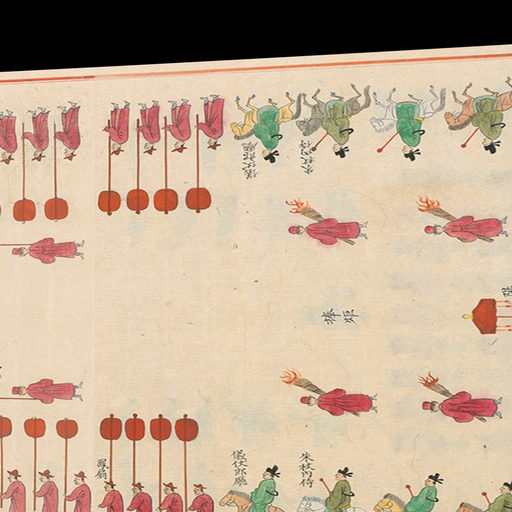 儀仗郎廳
朱杖內侍
捧炬
儀仗郎廳
朱杖內侍